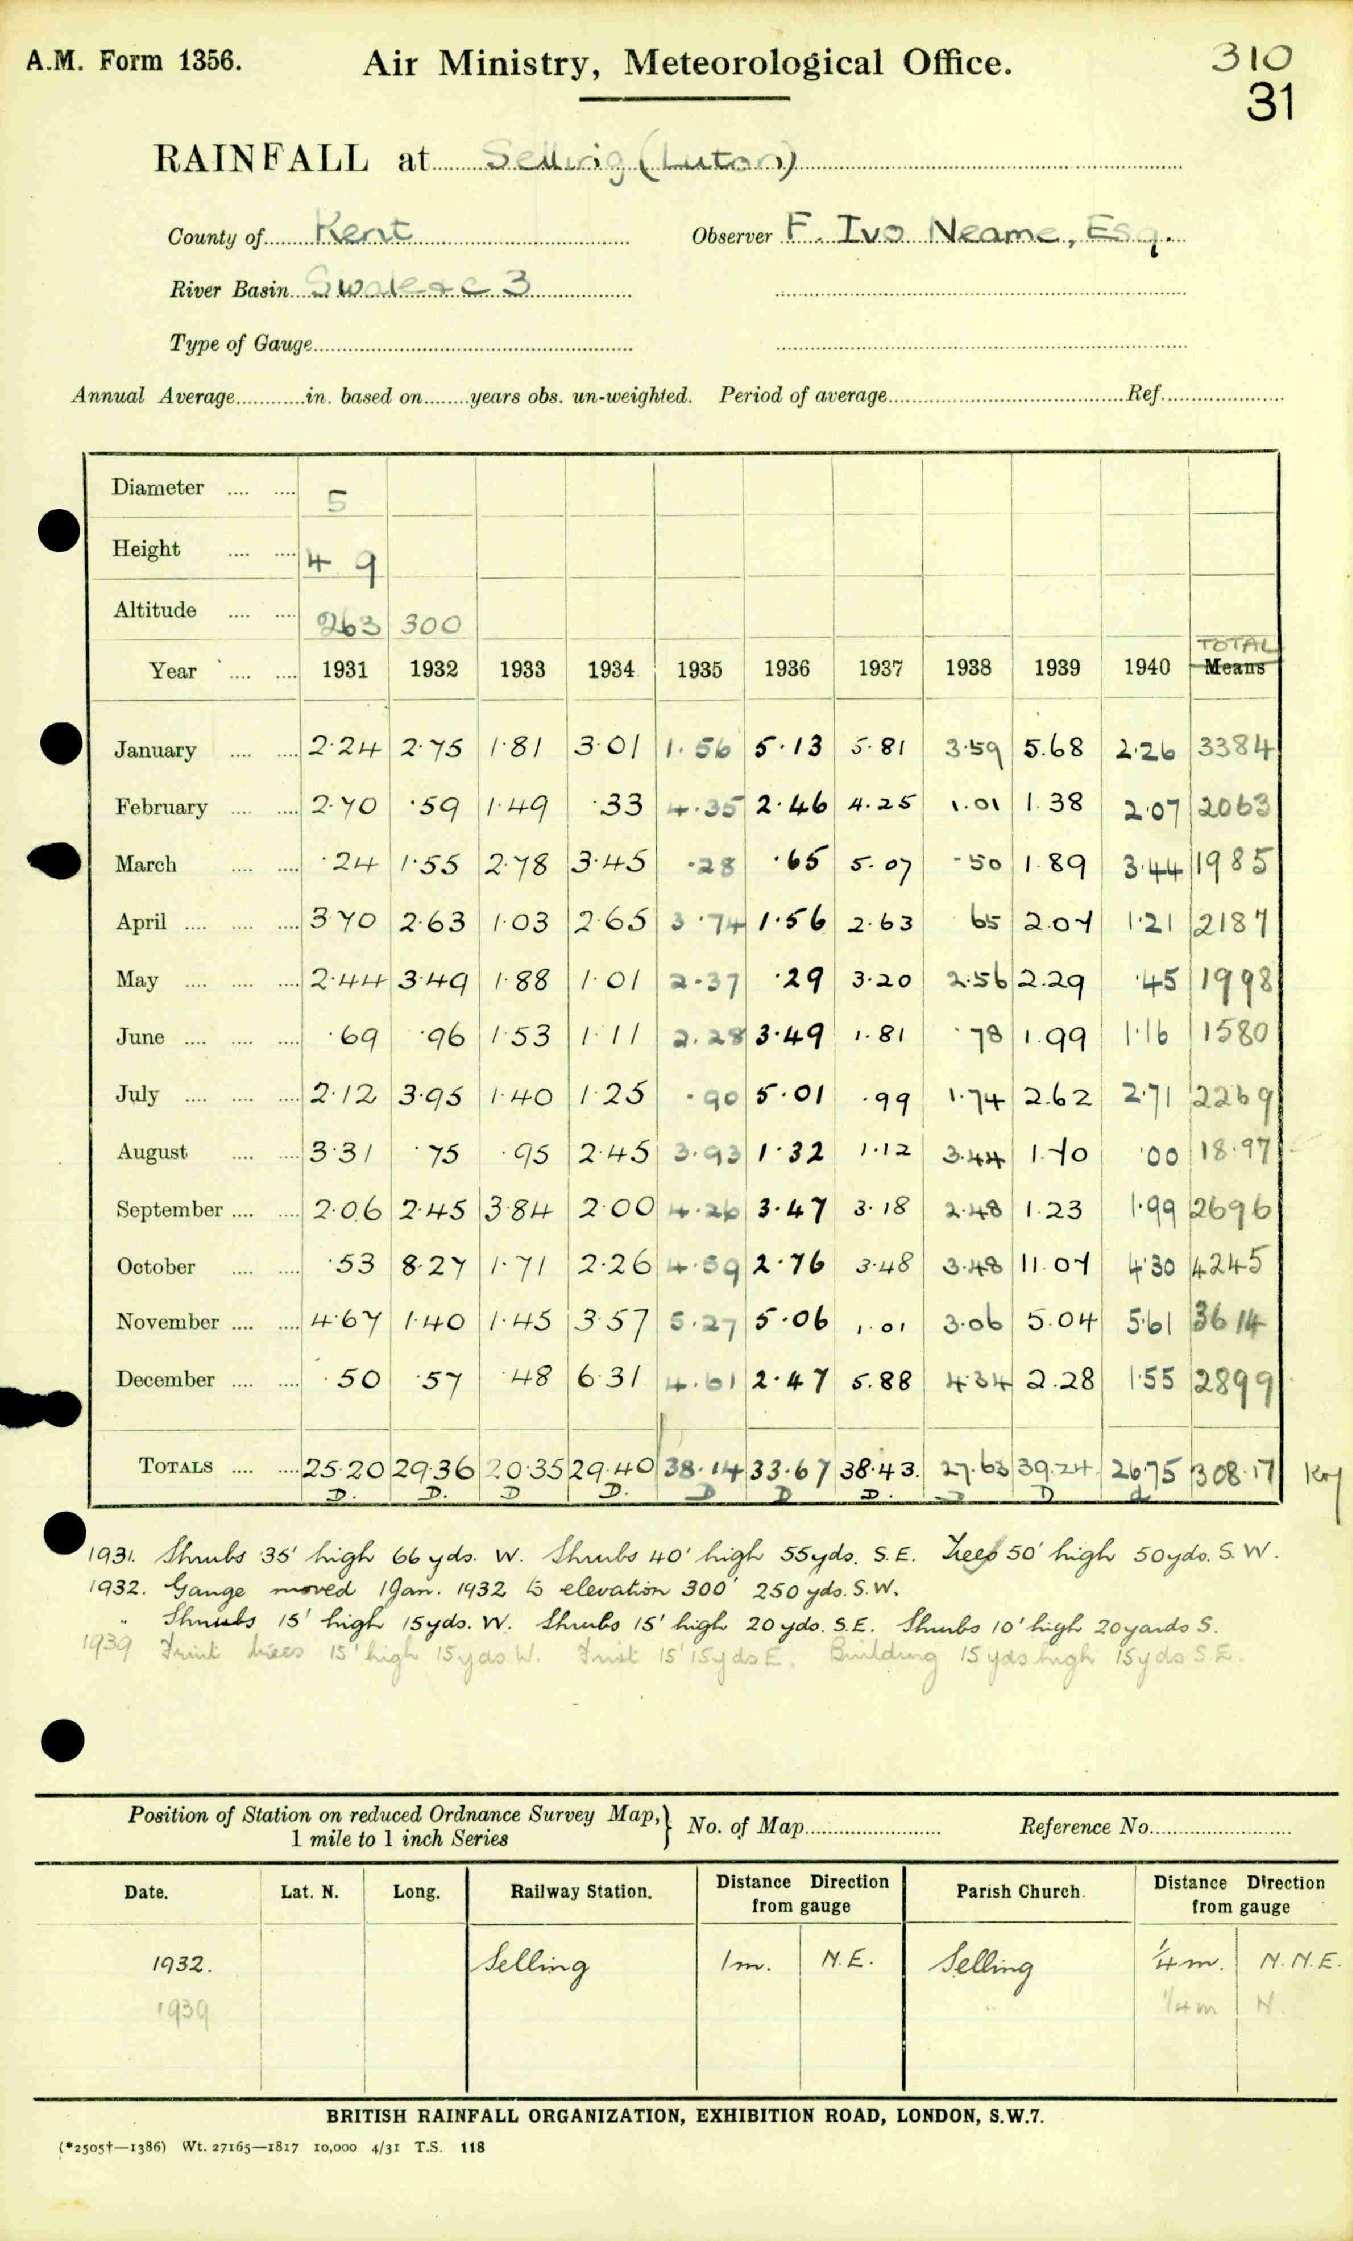 A.M. Form 1356.
Air Ministry, Meteorological Office.
310
31
RAINFALL at Selling (Luton)
County of Kent Observer F. Ivo Neame, Esq.
River Basin Swale &c 3
Type of Gauge
Annual Average in. based on years obs. un-weighted. Period of average Ref.
Diameter 5
Height 4 9
Altitude 263 300
TOTAL
Year 1931 1932 1933 1934 1935 1936 1937 1938 1939 1940 Means
January 2.24 2.75 1.81 3.01 1.56 5.13 5.81 3.59 5.68 2.26 3384
February 2.70 .59 1.49 .33 4.35 2.46 4.25 1.01 1.38 2.07 2063
March .24 1.55 2.78 3.45 .28 .65 5.07 .50 1.89 3.44 1985
April 3.70 2.63 1.03 2.65 3.74 1.56 2.63 65 2.07 1.21 2187
May 2.44 3.49 1.88 1.01 2.37 .29 3.20 2.56 2.29 .45 1998
June .69 .96 1.53 1.11 2.28 3.49 1.81 .78 1.99 1.16 1580
July 2.12 3.95 1.40 1.25 .90 5.01 .99 1.74 2.62 2.71 2269
August 3.31 .75 .95 2.45 3.93 1.32 1.12 3.44 1.70 .00 18.97
September 2.06 2.45 3.84 2.00 4.26 3.47 3.18 2.48 1.23 1.99 2696
October .53 8.27 1.71 2.26 4.59 2.76 3.48 3.48 11.07 4.30 4245
November 4.67 1.40 1.45 3.57 5.27 5.06 1.01 3.06 5.04 5.61 3614
December .50 .57 .48 6.31 4.61 2.47 5.88 4.34 2.28 1.55 2899
TOTALS 25.20 29.36 20.35 29.40 38.14 33.67 38.43. 27.63 39.24. 26.75 308.17
D. D. D D. D D D. D D d
1931. Shrubs 35' high 66 yds. W. Shrubs 40' high 55yds. S.E. Trees 50' high 50yds. S.W.
1932. Gauge moved 1 Jan. 1932 to elevation 300' 250 yds. S.W.
" Shrubs 15' high 15yds. W. Shrubs 15' high 20 yds. S.E. Shrubs 10' high 20yards S.
1939 Fruit trees 15' high 15yds W. Fruit 15' 15yds E. Building 15 yds high 15yds S.E.
Position of Station on reduced Ordnance Survey Map, 1 mile to 1 inch Series } No. of Map Reference No.
Date. Lat. N. Long. Railway Station. Distance Direction from gauge Parish Church. Distance Direction from gauge
1932. Selling 1m. N.E. Selling ¼ m. N.N.E.
1939 " ¼ m N.
BRITISH RAINFALL ORGANIZATION, EXHIBITION ROAD, LONDON, S.W.7.
(*2505†—1386) Wt. 27165—1817 10,000 4/31 T.S. 118